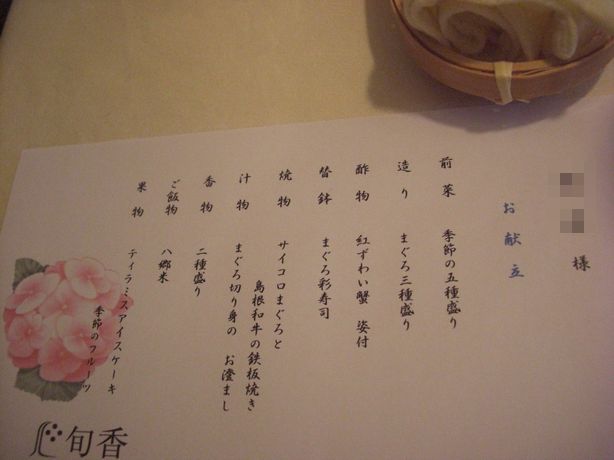 様
お献立
前菜 季節の五種盛り
造り まぐろ三種盛り
酢物 紅ずわい蟹 姿付
替鉢 まぐろ彩寿司
焼物 サイコロまぐろと
島根和牛の鉄板焼き
汁物 まぐろ切り身の お澄まし
香物 二種盛り
ご飯物 八郷米
果物 ティラミスアイスケーキ
季節のフルーツ
旬香